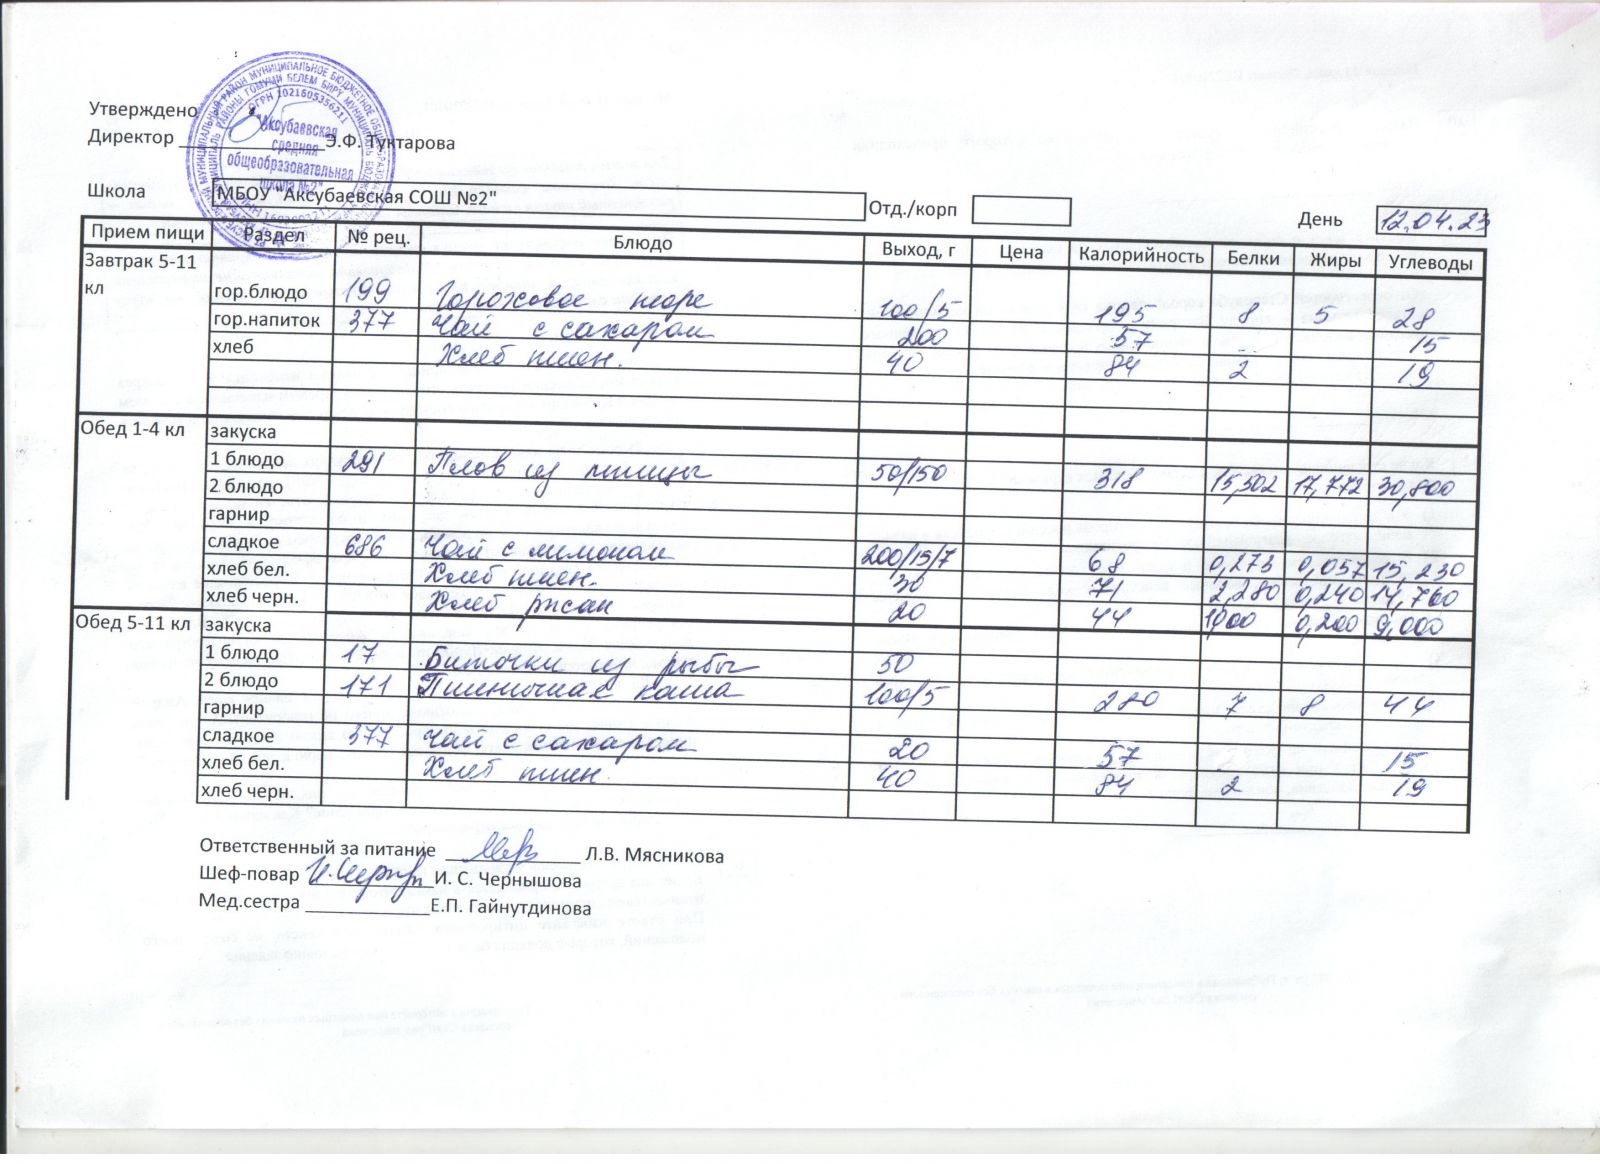 Утверждено
Директор ______________Э.Ф. Туктарова
ОГРН 1021605356211
"Аксубаевская
средняя
общеобразовательная
школа №2"
Школа МБОУ "Аксубаевская СОШ №2" Отд./корп День 12.04.23
Прием пищи Раздел № рец. Блюдо Выход, г Цена Калорийность Белки Жиры Углеводы
Завтрак 5-11 кл
гор.блюдо 199 Гороховое пюре 100/5 195 8 5 28
гор.напиток 377 Чай с сахаром 200 57 15
хлеб Хлеб пшен. 40 84 2 19
Обед 1-4 кл закуска
1 блюдо 291 Плов из птицы 50/150 318 15,502 17,772 30,800
2 блюдо
гарнир
сладкое 686 Чай с лимоном 200/15/7 68 0,273 0,057 15,230
хлеб бел. Хлеб пшен. 30 71 2,280 0,240 14,760
хлеб черн. Хлеб ржан 20 44 1,000 0,200 9,000
Обед 5-11 кл закуска
1 блюдо 17 Биточки из рыбы 50
2 блюдо 171 Пшеничная каша 100/5 280 7 8 44
гарнир
сладкое 377 Чай с сахаром 20 57 15
хлеб бел. Хлеб пшен 40 84 2 19
хлеб черн.
Ответственный за питание _____________ Л.В. Мясникова
Шеф-повар ____________И. С. Чернышова
Мед.сестра ____________Е.П. Гайнутдинова